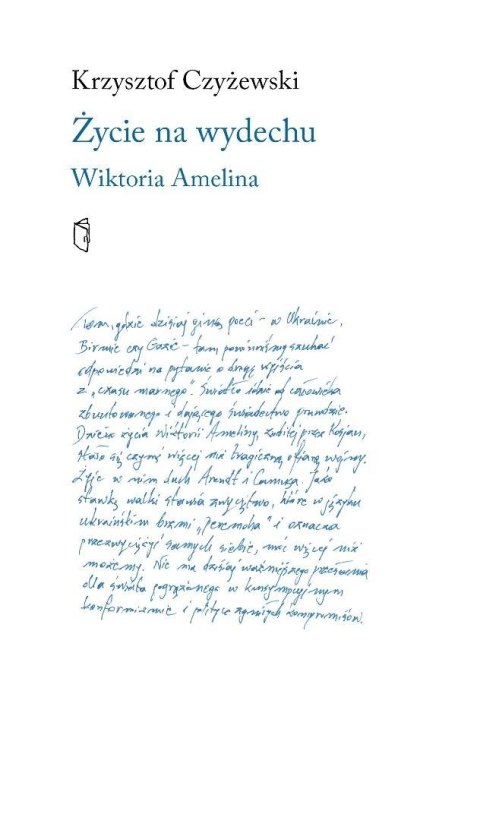 Krzysztof Czyżewski
Życie na wydechu
Wiktoria Amelina
Tam, gdzie dzisiaj giną poeci – w Ukrainie,
Birmie czy Gazie – tam powinniśmy szukać
odpowiedzi na pytanie o drogę wyjścia
z „czasu marnego". Światło idzie od człowieka
zbuntowanego i dającego świadectwo prawdzie.
Dzieło życia Wiktorii Ameliny, zabitej przez Rosjan,
stało się czymś więcej niż tragiczną ofiarą wojny.
Żyje w nim duch Arendt i Camusa. Jako
stawkę walki stawia zwycięstwo, które w języku
ukraińskim brzmi „peremoha" i oznacza
przezwyciężyć samych siebie, móc więcej niż
możemy. Nie ma dzisiaj ważniejszego przesłania
dla świata pogrążonego w konsumpcyjnym
konformizmie i polityce zgniłych kompromisów.